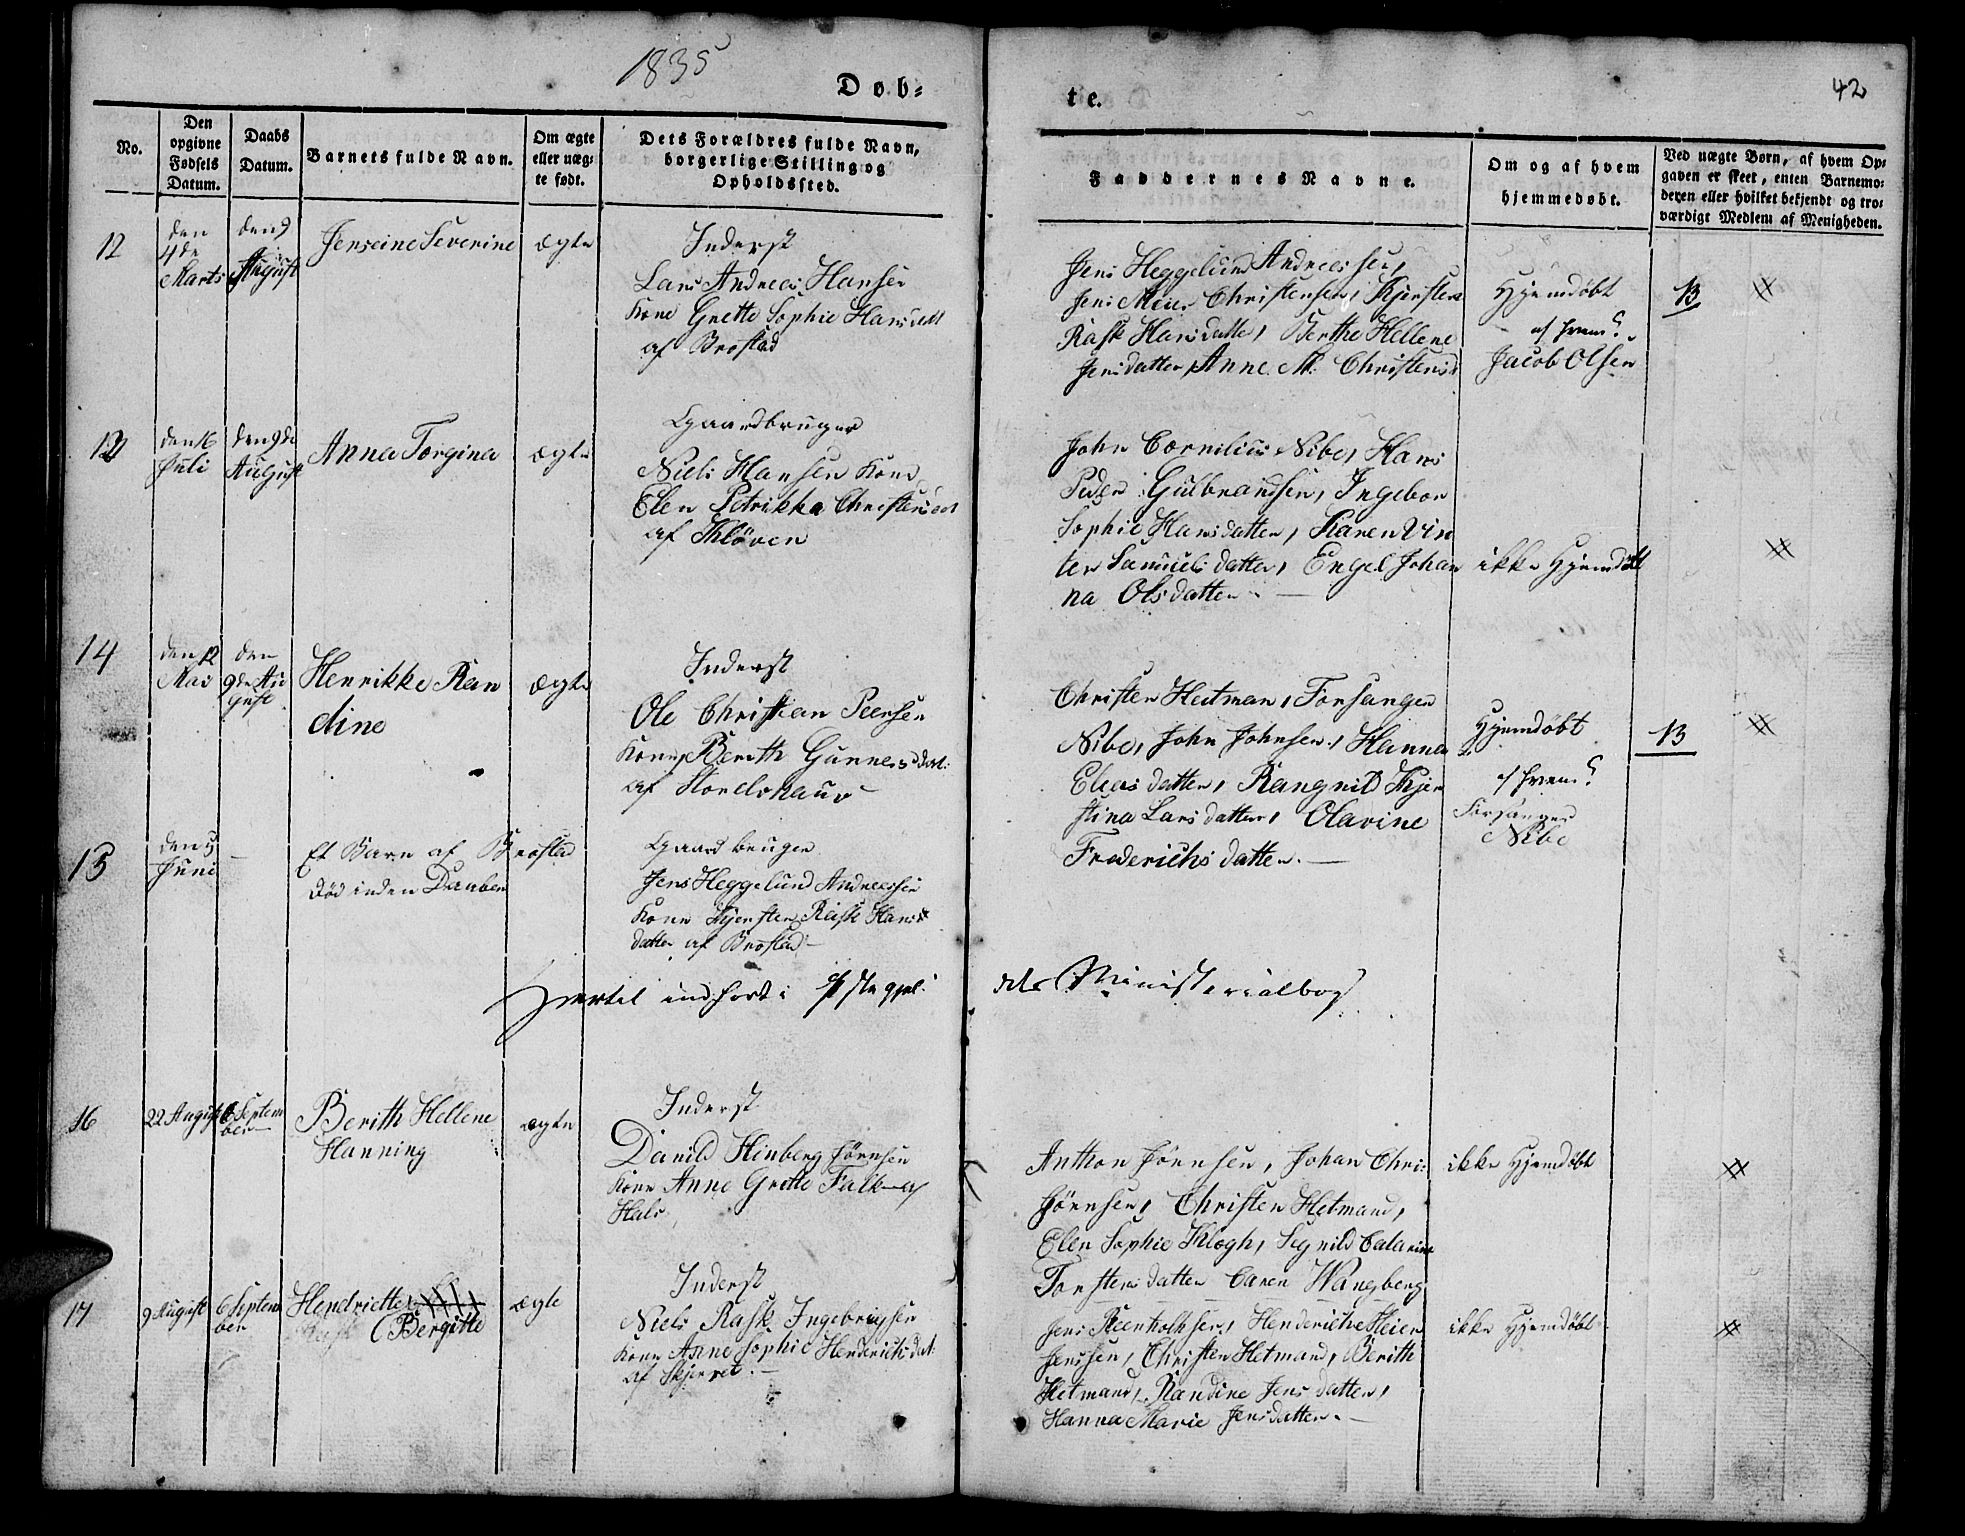 1835
Døb-
te.
42
No.
Den
opgivne
Fødsels
Datum.
Daabs
Datum.
Barnets fulde Navn.
Om ægte
eller uæg-
te født.
Dets Forældres fulde Navn,
borgerlige Stilling og
Opholdssted.
Faddernes Navne.
Om og af hvem
hjemmedøbt.
Ved uægte Børn, af hvem Op-
gaven er skeet, enten Barnemo-
deren eller hvilket bekjendt og tro-
værdigt Medlem af Menigheden.
12
den
4de
Marts
den 9
August
Jenseine Severine
ægte
Inderst
Lars Andreas Hansen
Kone Grette Sophie Hansdatt
af Brostad
Jens Heggelund Andreassen,
Jens Meier Christensen, Kjersten
Rask Hansdatte, Berthe Hellene
Jensdatter, Anne M. Christensd
Hjemdøbt
af hvem?
Jacob Olsen
13
den 16
Juli
den 9de
August
Anna Torgina
ægte
Gaardbruger
Niels Hansen Kone
Elen Petrikka Christensdat
af Kløven
John Cornilius Nibe, Hans
Peder Gulbrandsen, Ingebor
Sophie Hansdatter, Karen Vin
ter Samuels datter, Engel Johan
na Olsdatter
ikke Hjemdøbt
14
den 12
Mai
den
9de Au
gust
Henrikke Ran
dine
ægte
Inderst
Ole Christian Peersen
Kone Berith Gunnersdat:
af
Christen Heitman, Forsanger
Nibe, John Johnsen, Hanna
Elias datter, Rangnild Kjer
stina Larsdatter, Olavine
Frederichs datter.
Hjemdøbt
af hvem?
Forsanger
Nibe
15
den 5
Juni
Et Barn af Brostad
Død inden Daaben
Gaard bruger
Jens Heggelund Andreassen
Kone Kjersten Rask Hans
datter af Brostad
Hertil indført i
dets Ministerialbog
16
22 August
6 Septem
ber
Berith Hellene
Hanning
ægte
Inderst
Danild Hinberg Jørnsen
Kone Anne Grette Falk af
Hals
Anthon Jørnsen, Johan Chri:
Jørnsen, Christen Hetmand,
Elen Sophie Klogh, Segnild Catarine
Torstens datter Caren Wangberg
ikke Hjemdøbt
17
9 August
6 Septem
ber
Hendriette
Bergitte
ægte
Inderst
Niels Rask Ingebrigsen
Kone Anne Sophie Henderichsdat:
af Skjervet.
Jens Reenholtsen, Henderich Meier
Jenssen, Christen Hetmand, Berith
Hetmand, Randine Jens datter,
Hanna Marie Jensdatter.
ikke Hjemdøbt